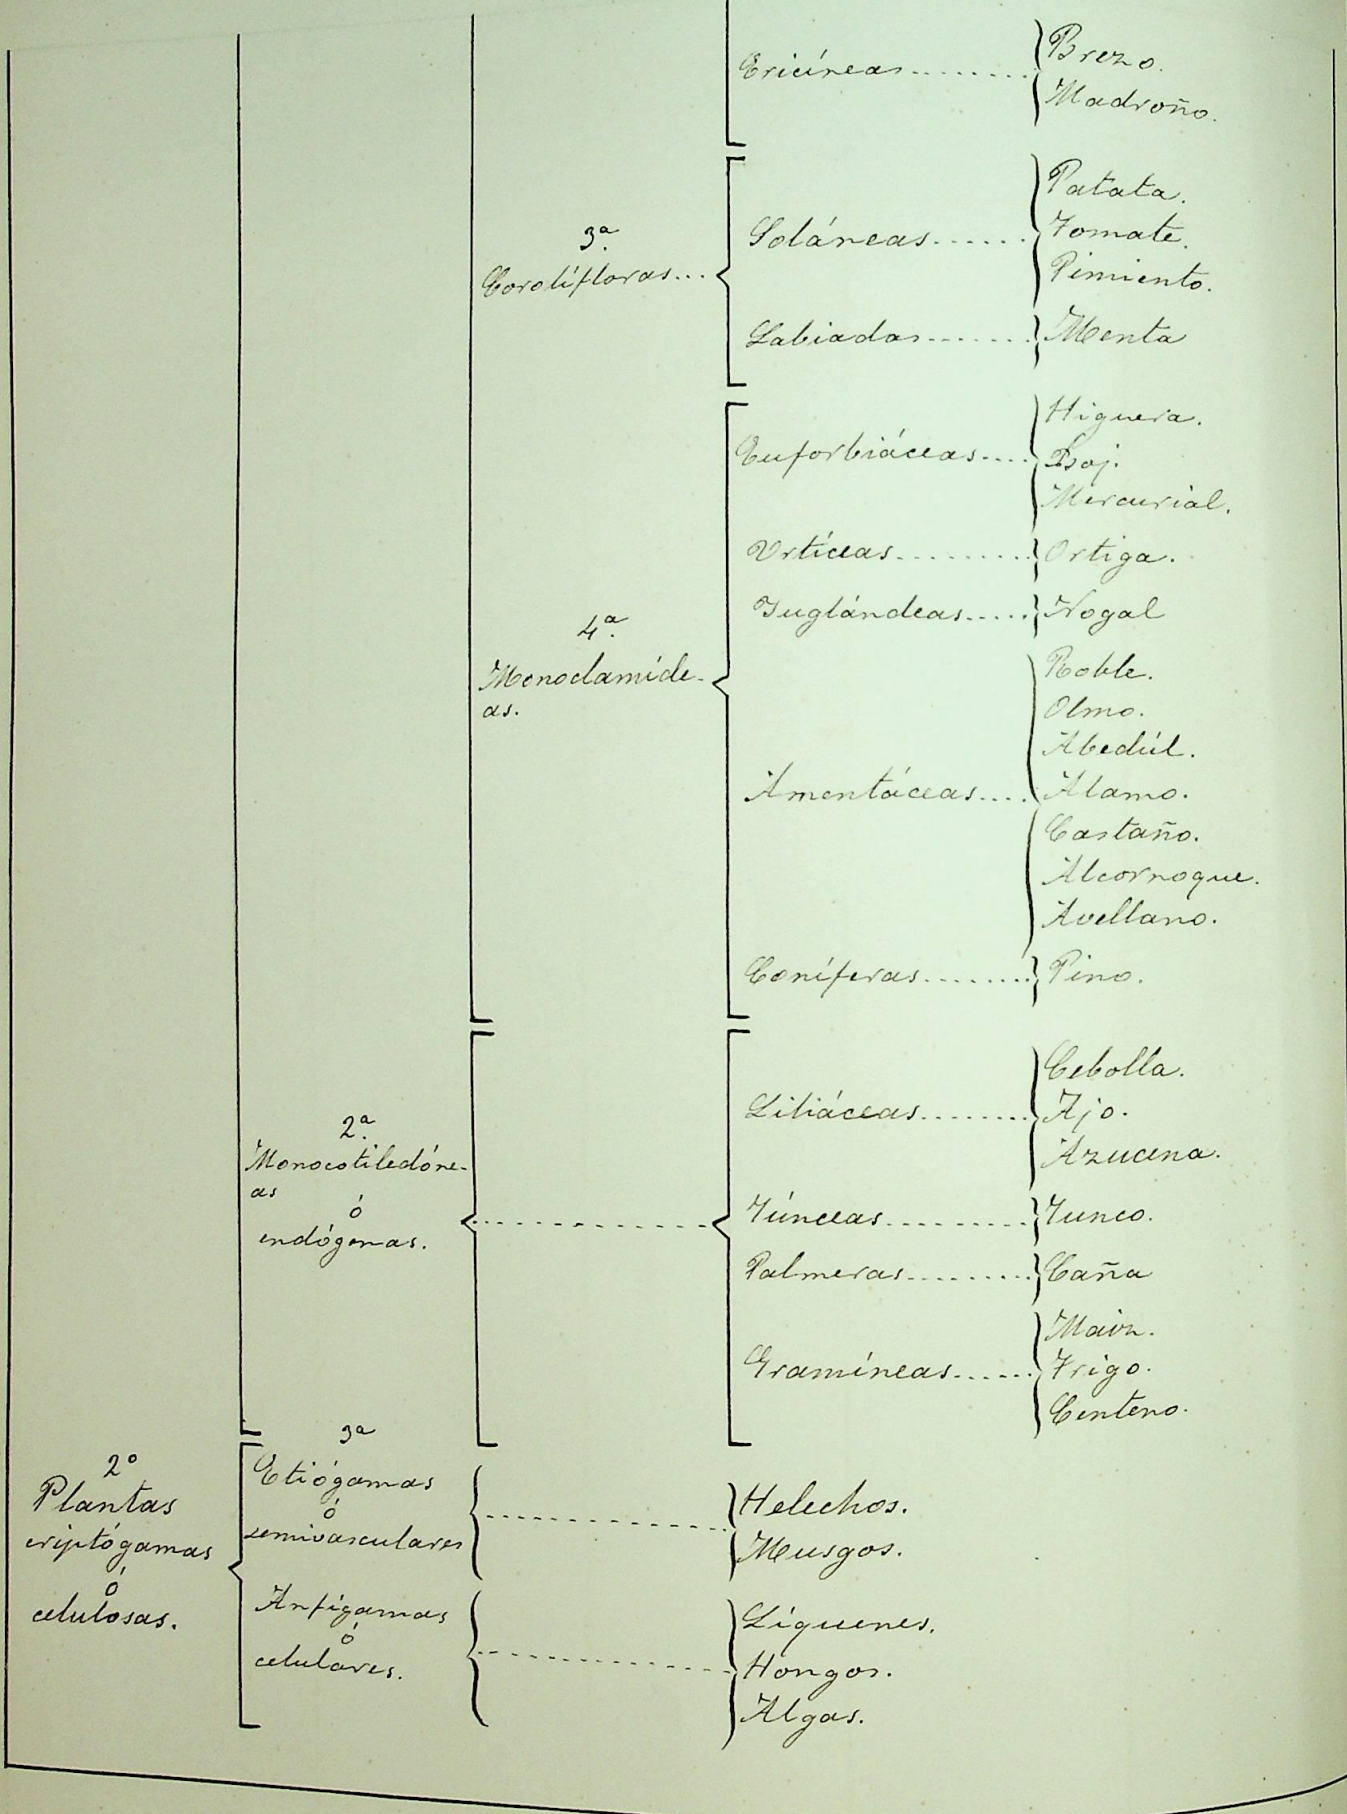 Ericíneas
Brezo.
Madroño.
3ª
Corolífloras...
Soláneas
Patata.
Tomate.
Pimiento.
Labiadas
Menta
4ª
Monoclamíde-
as.
Euforbiáceas
Higuera.
Boj.
Mercurial.
Urtíceas
Ortiga.
Juglándeas
Nogal
Amentáceas
Roble.
Olmo.
Abedúl.
Álamo.
Castaño.
Alcornoque.
Avellano.
Coníferas
Pino.
2ª
Monocotiledóne-
as
ó
endógenas.
Liliáceas
Cebolla.
Ajo.
Azucena.
Júnceas
Junco.
Palmeras
Caña
Gramíneas
Maiz.
Trigo.
Centeno.
2º
Plantas
criptógamas
ó
celulosas.
3ª
Etiógamas
ó
semivasculares
Helechos.
Musgos.
Anfigamas
ó
celulares.
Líquenes.
Hongos.
Algas.